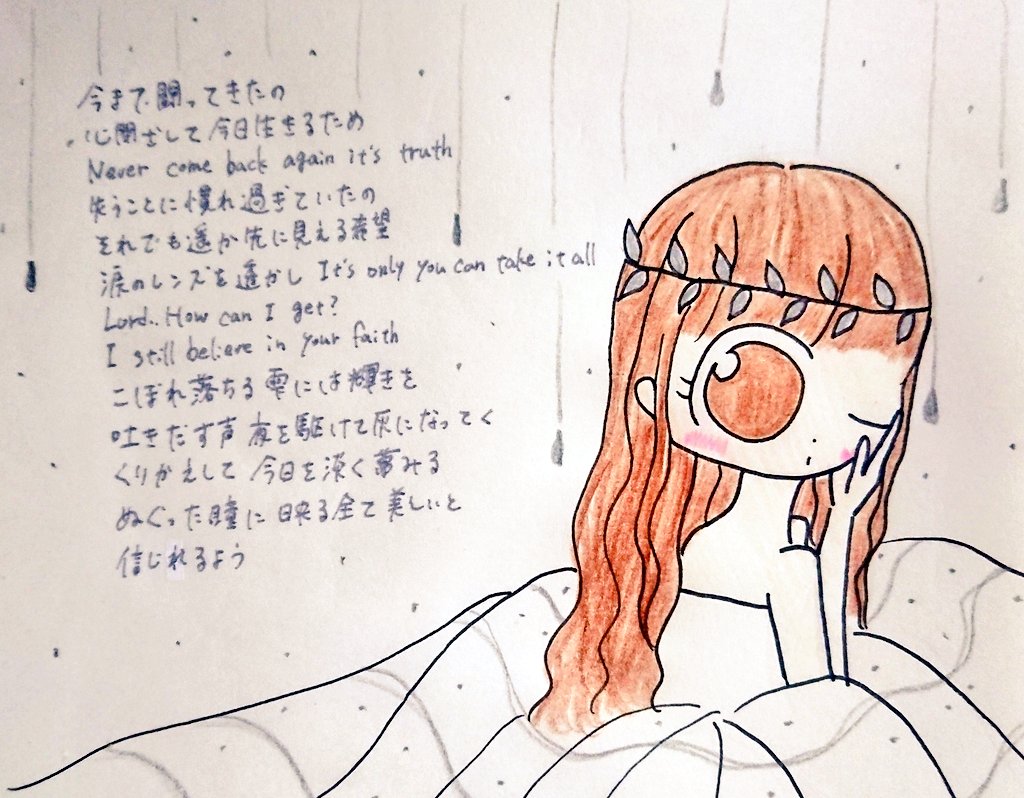 今まで闘ってきたの
心閉ざして今日生きるため
Never come back again it's truth
失うことに慣れ過ぎていたの
それでも遥か先に見える希望
涙のレンズを透かし It's only you can take it all
Lord.. How can I get?
I still believe in your faith
こぼれ落ちる雫には輝きを
吐きだす声 夜を駆けて灰になってく
くりかえして 今日を深く夢みる
ぬぐった瞳に映る全て美しいと
信じれるよう